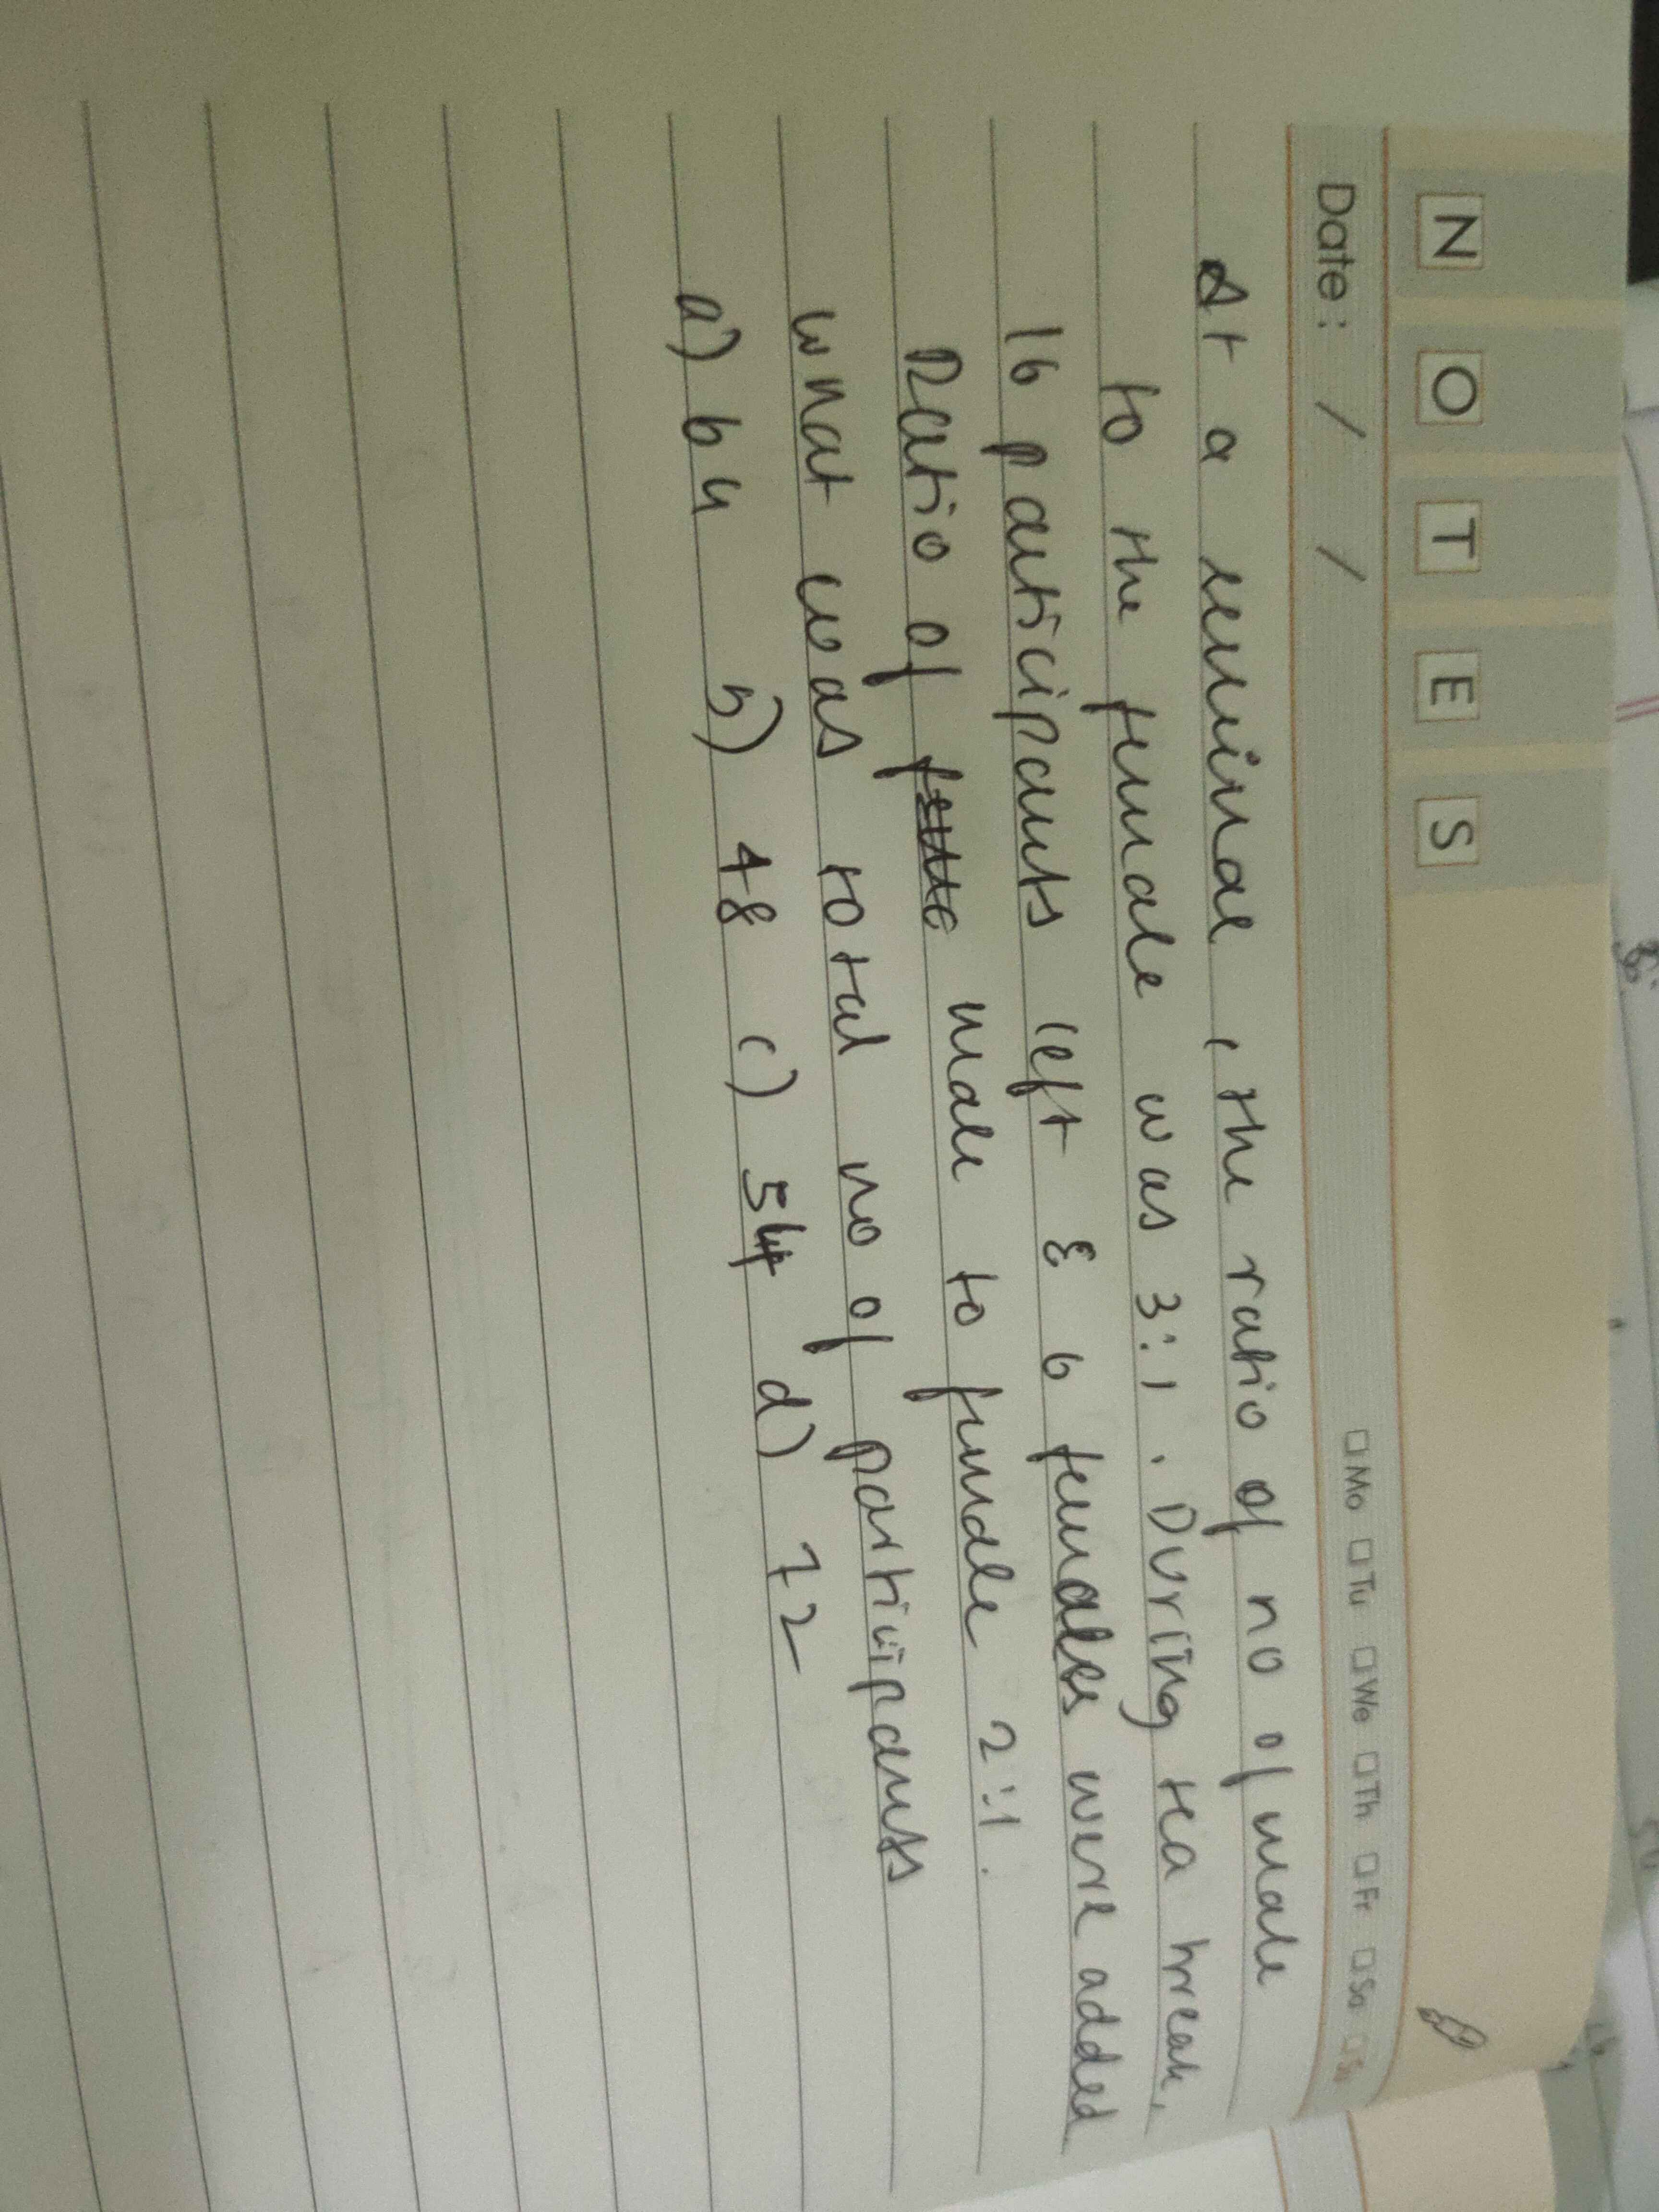 NOTES
Date: / / Mo Tu We Th Fr Sa Su
At a seminar, the ratio of no of male
to the female was 3:1. During tea break,
16 participants left & 6 females were added
Ratio of male to female 2:1.
what was total no of participants
a) 64 b) 48 c) 54 d) 72